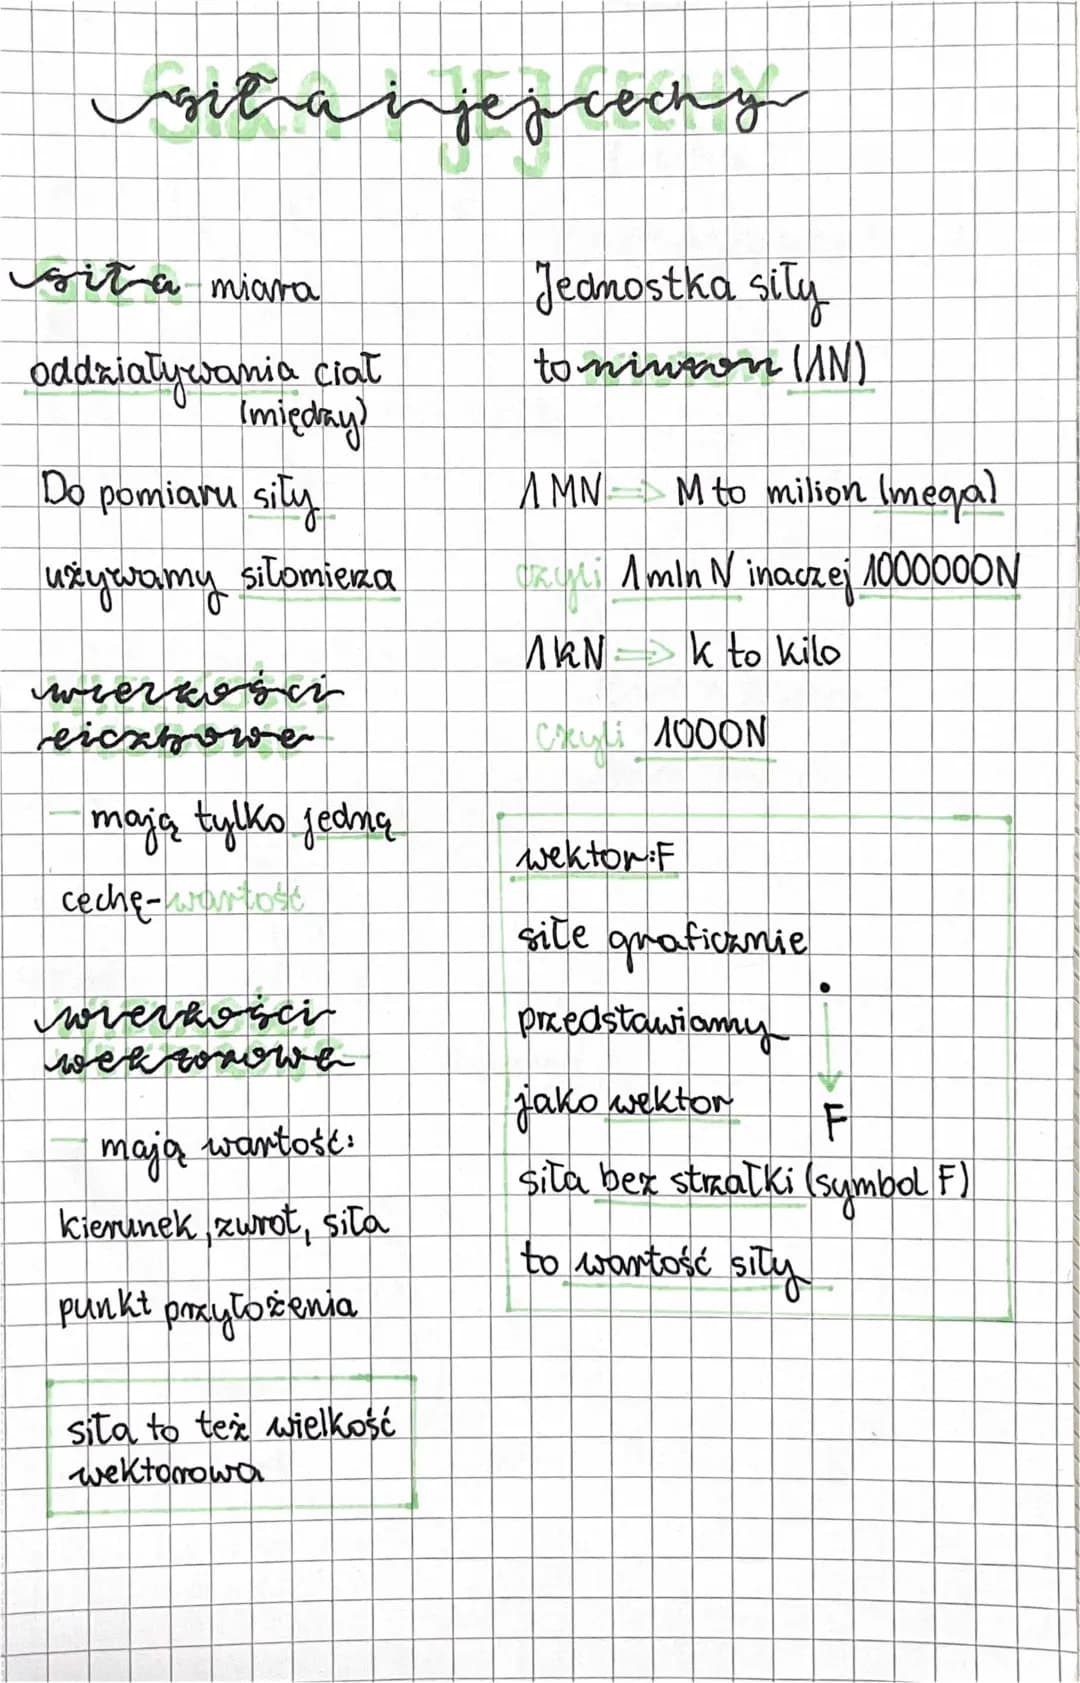 siła i jej cechy
siła - miara
oddziaływania ciał
(między)
Do pomiaru siły
używamy siłomierza
wielkości
liczbowe
- mają tylko jedną
cechę - wartość
wielkości
wektorowe
- mają wartość:
kierunek, zwrot, siła
punkt przyłożenia
siła to też wielkość
wektorowa
Jednostka siły
to niuton (1N)
1 MN => M to milion (mega)
czyli 1 mln N inaczej 1000000N
1 kN => k to kilo
czyli 1000N
wektor: F
siłe graficznie
przedstawiamy
jako wektor
F
siła bez strzałki (symbol F)
to wartość siły